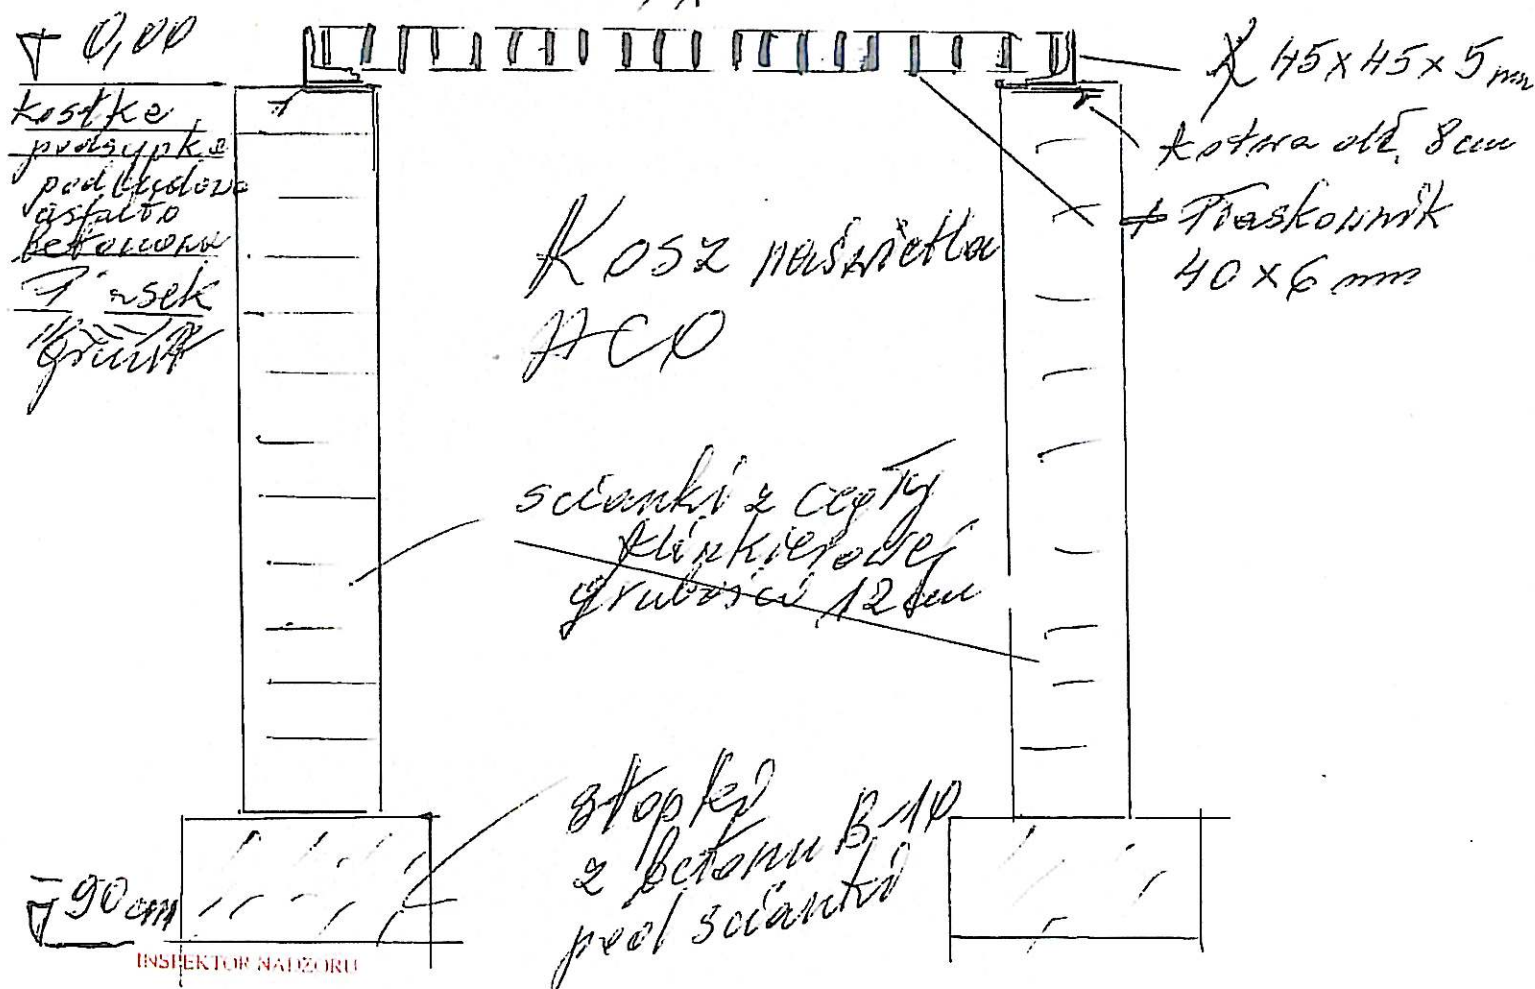 0,00
kostka
podsypka
podbudowa
asfalto
betonowa
Piasek
grunt
45x45x5 mm
kotwa dł. 8cm
Płaskownik
40x6 mm
Kosz naświetla
ACO
scianki z cegły
klinkierowej
grubości 12 cm
stopki
z betonu B-10
pod scianki
-90 cm
INSPEKTOR NADZORU